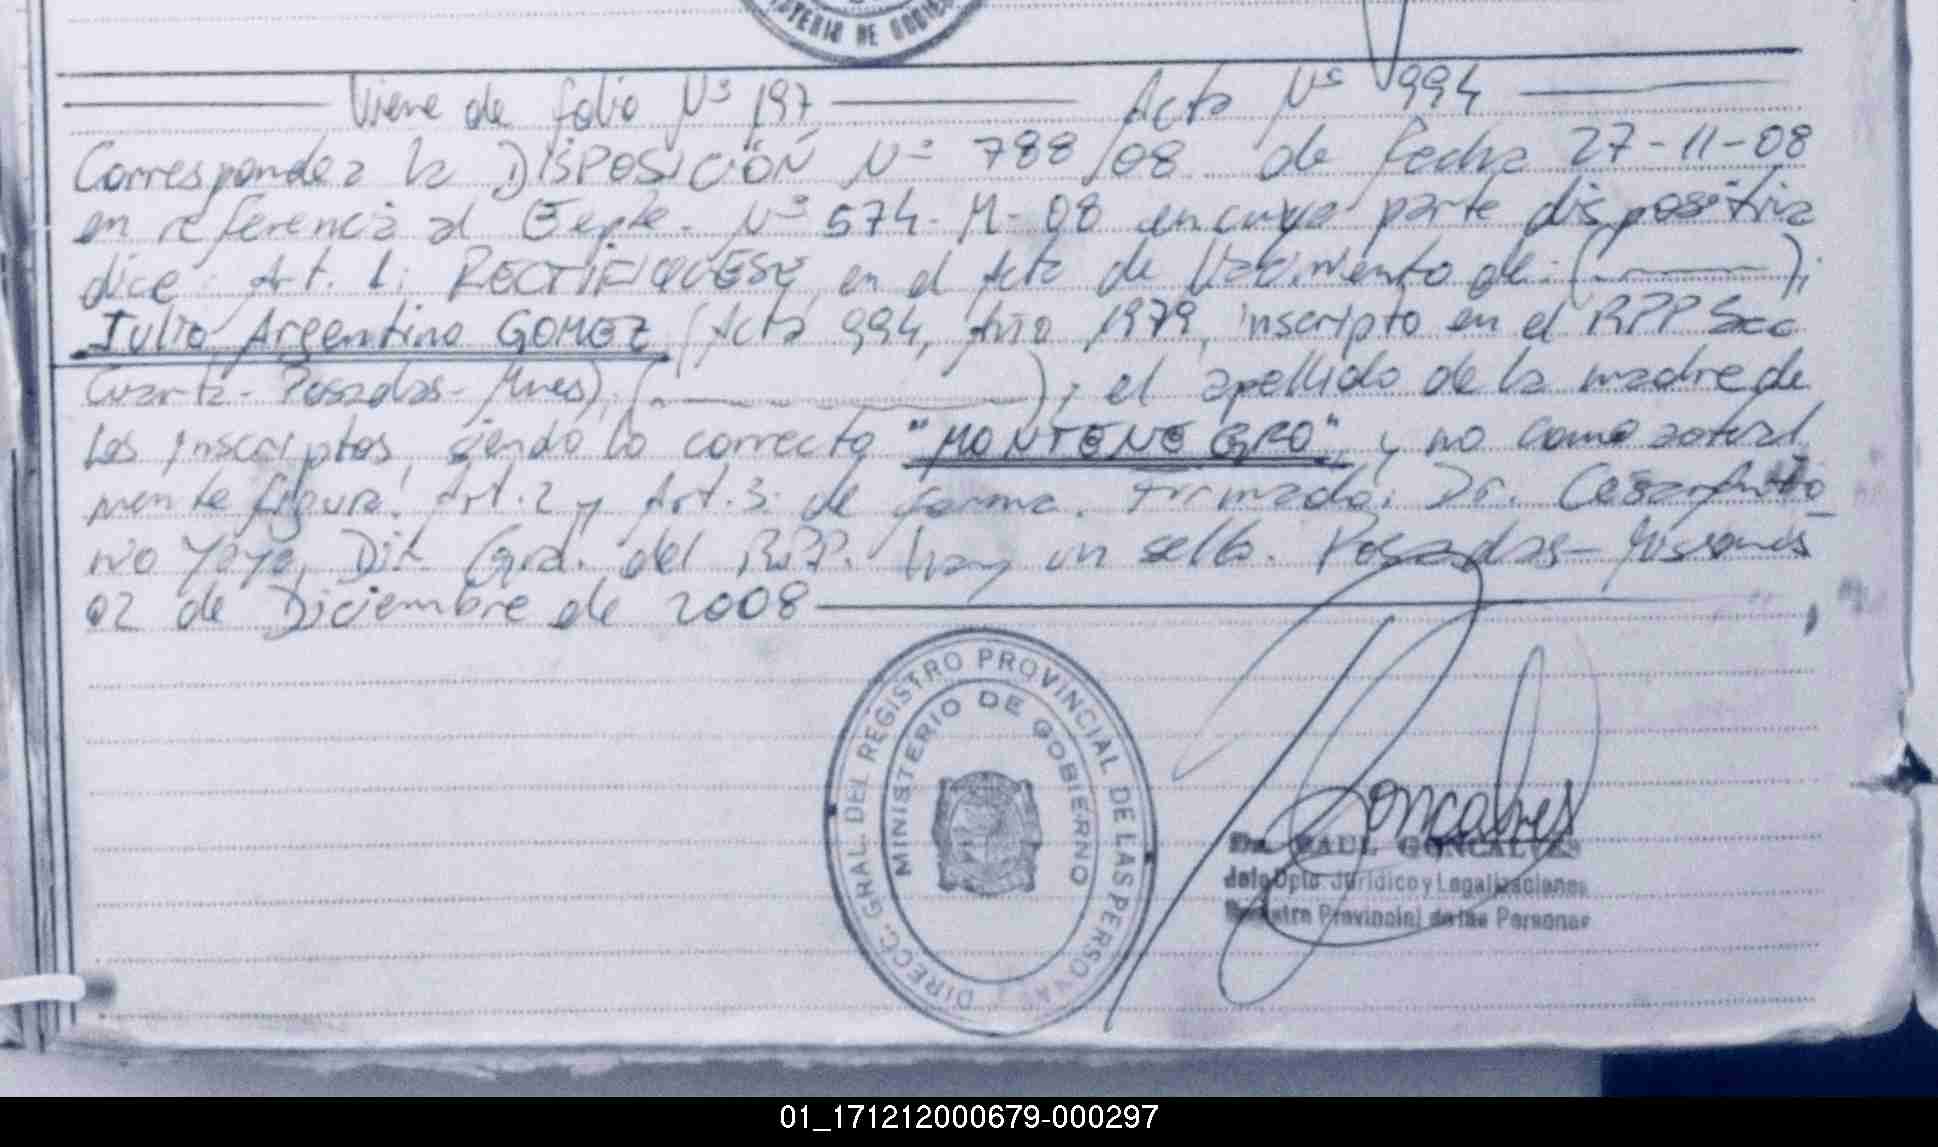 TERIO DE GOBIE
Viene de folio Nº 197 Acta Nº 994
Corresponde a la DISPOSICIÓN Nº 788/08 de Fecha 27-11-08
en referencia al Expte. Nº 574-M-08 en cuya parte dispositiva
dice: Art. 1: RECTIFIQUESE, en el Acta de Nacimiento de: ( );
Julio Argentino GOMEZ (Acta 994, Año 1979, inscripto en el RPP Secc
Cuarta - Posadas - Mnes), ( ); el apellido de la madre de
los inscriptos, siendo lo correcto "MONTENEGRO", y no como actual
mente figura. Art. 2 y Art. 3: de forma. Firmado: Dr. Cesar Anto
nio Yaya, Dir. Gral. del R.P.P. hay un sello. Posadas - Misiones
02 de Diciembre de 2008
DIRECC. GRAL. DEL REGISTRO PROVINCIAL DE LAS PERSONAS
MINISTERIO DE GOBIERNO
Goncalves
Dr. RAUL GONCALVES
Jefe Dpto. Jurídico y Legalizaciones
Registro Provincial de las Personas
01_171212000679-000297